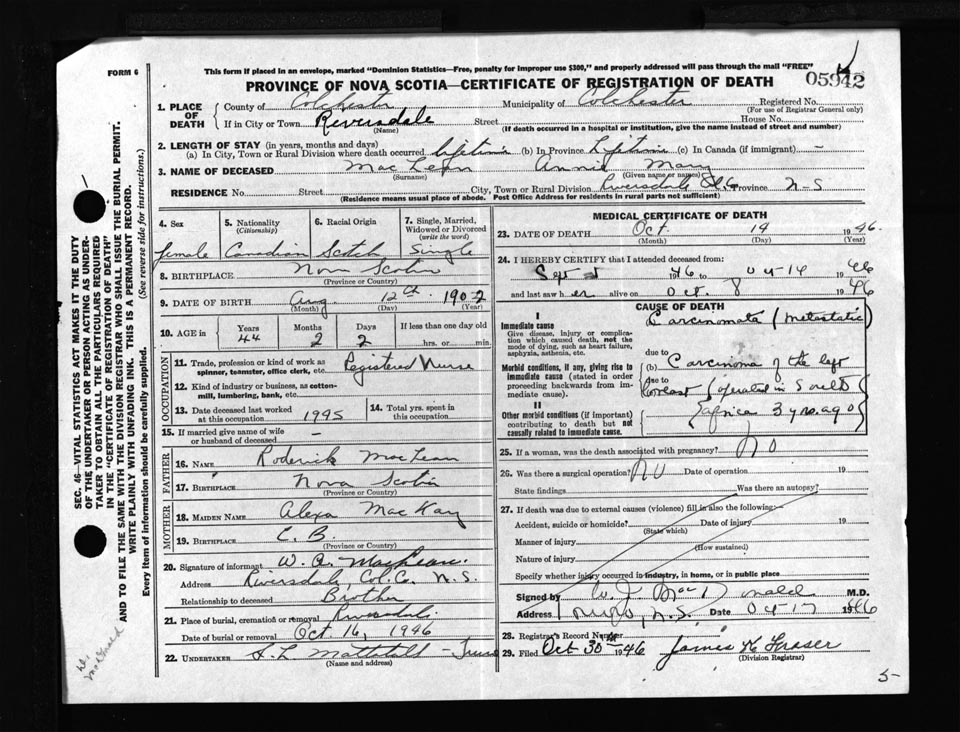 FORM 6
This form if placed in an envelope, marked "Dominion Statistics—Free, penalty for improper use $300," and properly addressed will pass through the mail "FREE"
PROVINCE OF NOVA SCOTIA—CERTIFICATE OF REGISTRATION OF DEATH
05942
1. PLACE OF DEATH
County of Colchester Municipality of Colchester Registered No.
(For use of Registrar General only)
If in City or Town Riversdale Street House No.
(Name) (If death occurred in a hospital or institution, give the name instead of street and number)
2. LENGTH OF STAY (in years, months and days)
(a) In City, Town or Rural Division where death occurred Lifetime (b) In Province Lifetime (c) In Canada (if immigrant) —
3. NAME OF DECEASED MacLean Annie Mary
(Surname) (Given name or names)
RESIDENCE No. Street City, Town or Rural Division Riversdale Province N-S
(Residence means usual place of abode. Post Office Address for residents in rural parts not sufficient)
4. Sex
female
5. Nationality
(Citizenship)
Canadian
6. Racial Origin
Scotch
7. Single, Married, Widowed or Divorced
(write the word)
Single
8. BIRTHPLACE Nova Scotia
(Province or Country)
9. DATE OF BIRTH Aug. 12th 1902
(Month) (Day) (Year)
10. AGE in Years Months Days If less than one day old
44 2 2 hrs. or min.
OCCUPATION
11. Trade, profession or kind of work as spinner, teamster, office clerk, etc. Registered Nurse
12. Kind of industry or business, as cotton-mill, lumbering, bank, etc.
13. Date deceased last worked at this occupation 1945
14. Total yrs. spent in this occupation
15. If married give name of wife or husband of deceased —
FATHER
16. NAME Roderick MacLean
17. BIRTHPLACE Nova Scotia
(Province or Country)
MOTHER
18. MAIDEN NAME Alexa MacKay
19. BIRTHPLACE C. B.
(Province or Country)
20. Signature of informant W. A. MacLean.
Address Riversdale, Col. Co. N.S.
Relationship to deceased Brother
21. Place of burial, cremation or removal Riversdale
Date of burial or removal Oct 16, 1946
22. UNDERTAKER Mattatall - Truro
(Name and address)
MEDICAL CERTIFICATE OF DEATH
23. DATE OF DEATH Oct. 14 1946.
(Month) (Day) (Year)
24. I HEREBY CERTIFY that I attended deceased from:
1946 to Oct-14 1946
and last saw her alive on Oct. 8 1946
CAUSE OF DEATH
I
Immediate cause
Give disease, injury or complication which caused death, not the mode of dying, such as heart failure, asphyxia, asthenia, etc.
Carcinomata (metastatic)
Morbid conditions, if any, giving rise to immediate cause (stated in order proceeding backwards from immediate cause).
due to
(b) Carcinoma of the left
due to
breast (operated in South
Africa 3 yrs. ago)
II
Other morbid conditions (if important) contributing to death but not causally related to immediate cause.
25. If a woman, was the death associated with pregnancy? No
26. Was there a surgical operation? No Date of operation 19
State findings Was there an autopsy?
27. If death was due to external causes (violence) fill in also the following:
Accident, suicide or homicide? Date of injury 19
(State which)
Manner of injury
(How sustained)
Nature of injury
Specify whether injury occurred in industry, in home, or in public place
Signed by W. J. MacDonald M.D.
Address Truro, N.S. Date Oct-17 1946
28. Registrar's Record Number
29. Filed Oct 30 1946 James H Fraser
(Division Registrar)
5-
SEC. 46—VITAL STATISTICS ACT MAKES IT THE DUTY OF THE UNDERTAKER OR PERSON ACTING AS UNDERTAKER TO OBTAIN ALL THE PARTICULARS REQUIRED IN THE "CERTIFICATE OF REGISTRATION OF DEATH"
AND TO FILE THE SAME WITH THE DIVISION REGISTRAR WHO SHALL ISSUE THE BURIAL PERMIT.
WRITE PLAINLY WITH UNFADING INK. THIS IS A PERMANENT RECORD.
Every item of information should be carefully supplied. (See reverse side for instructions.)